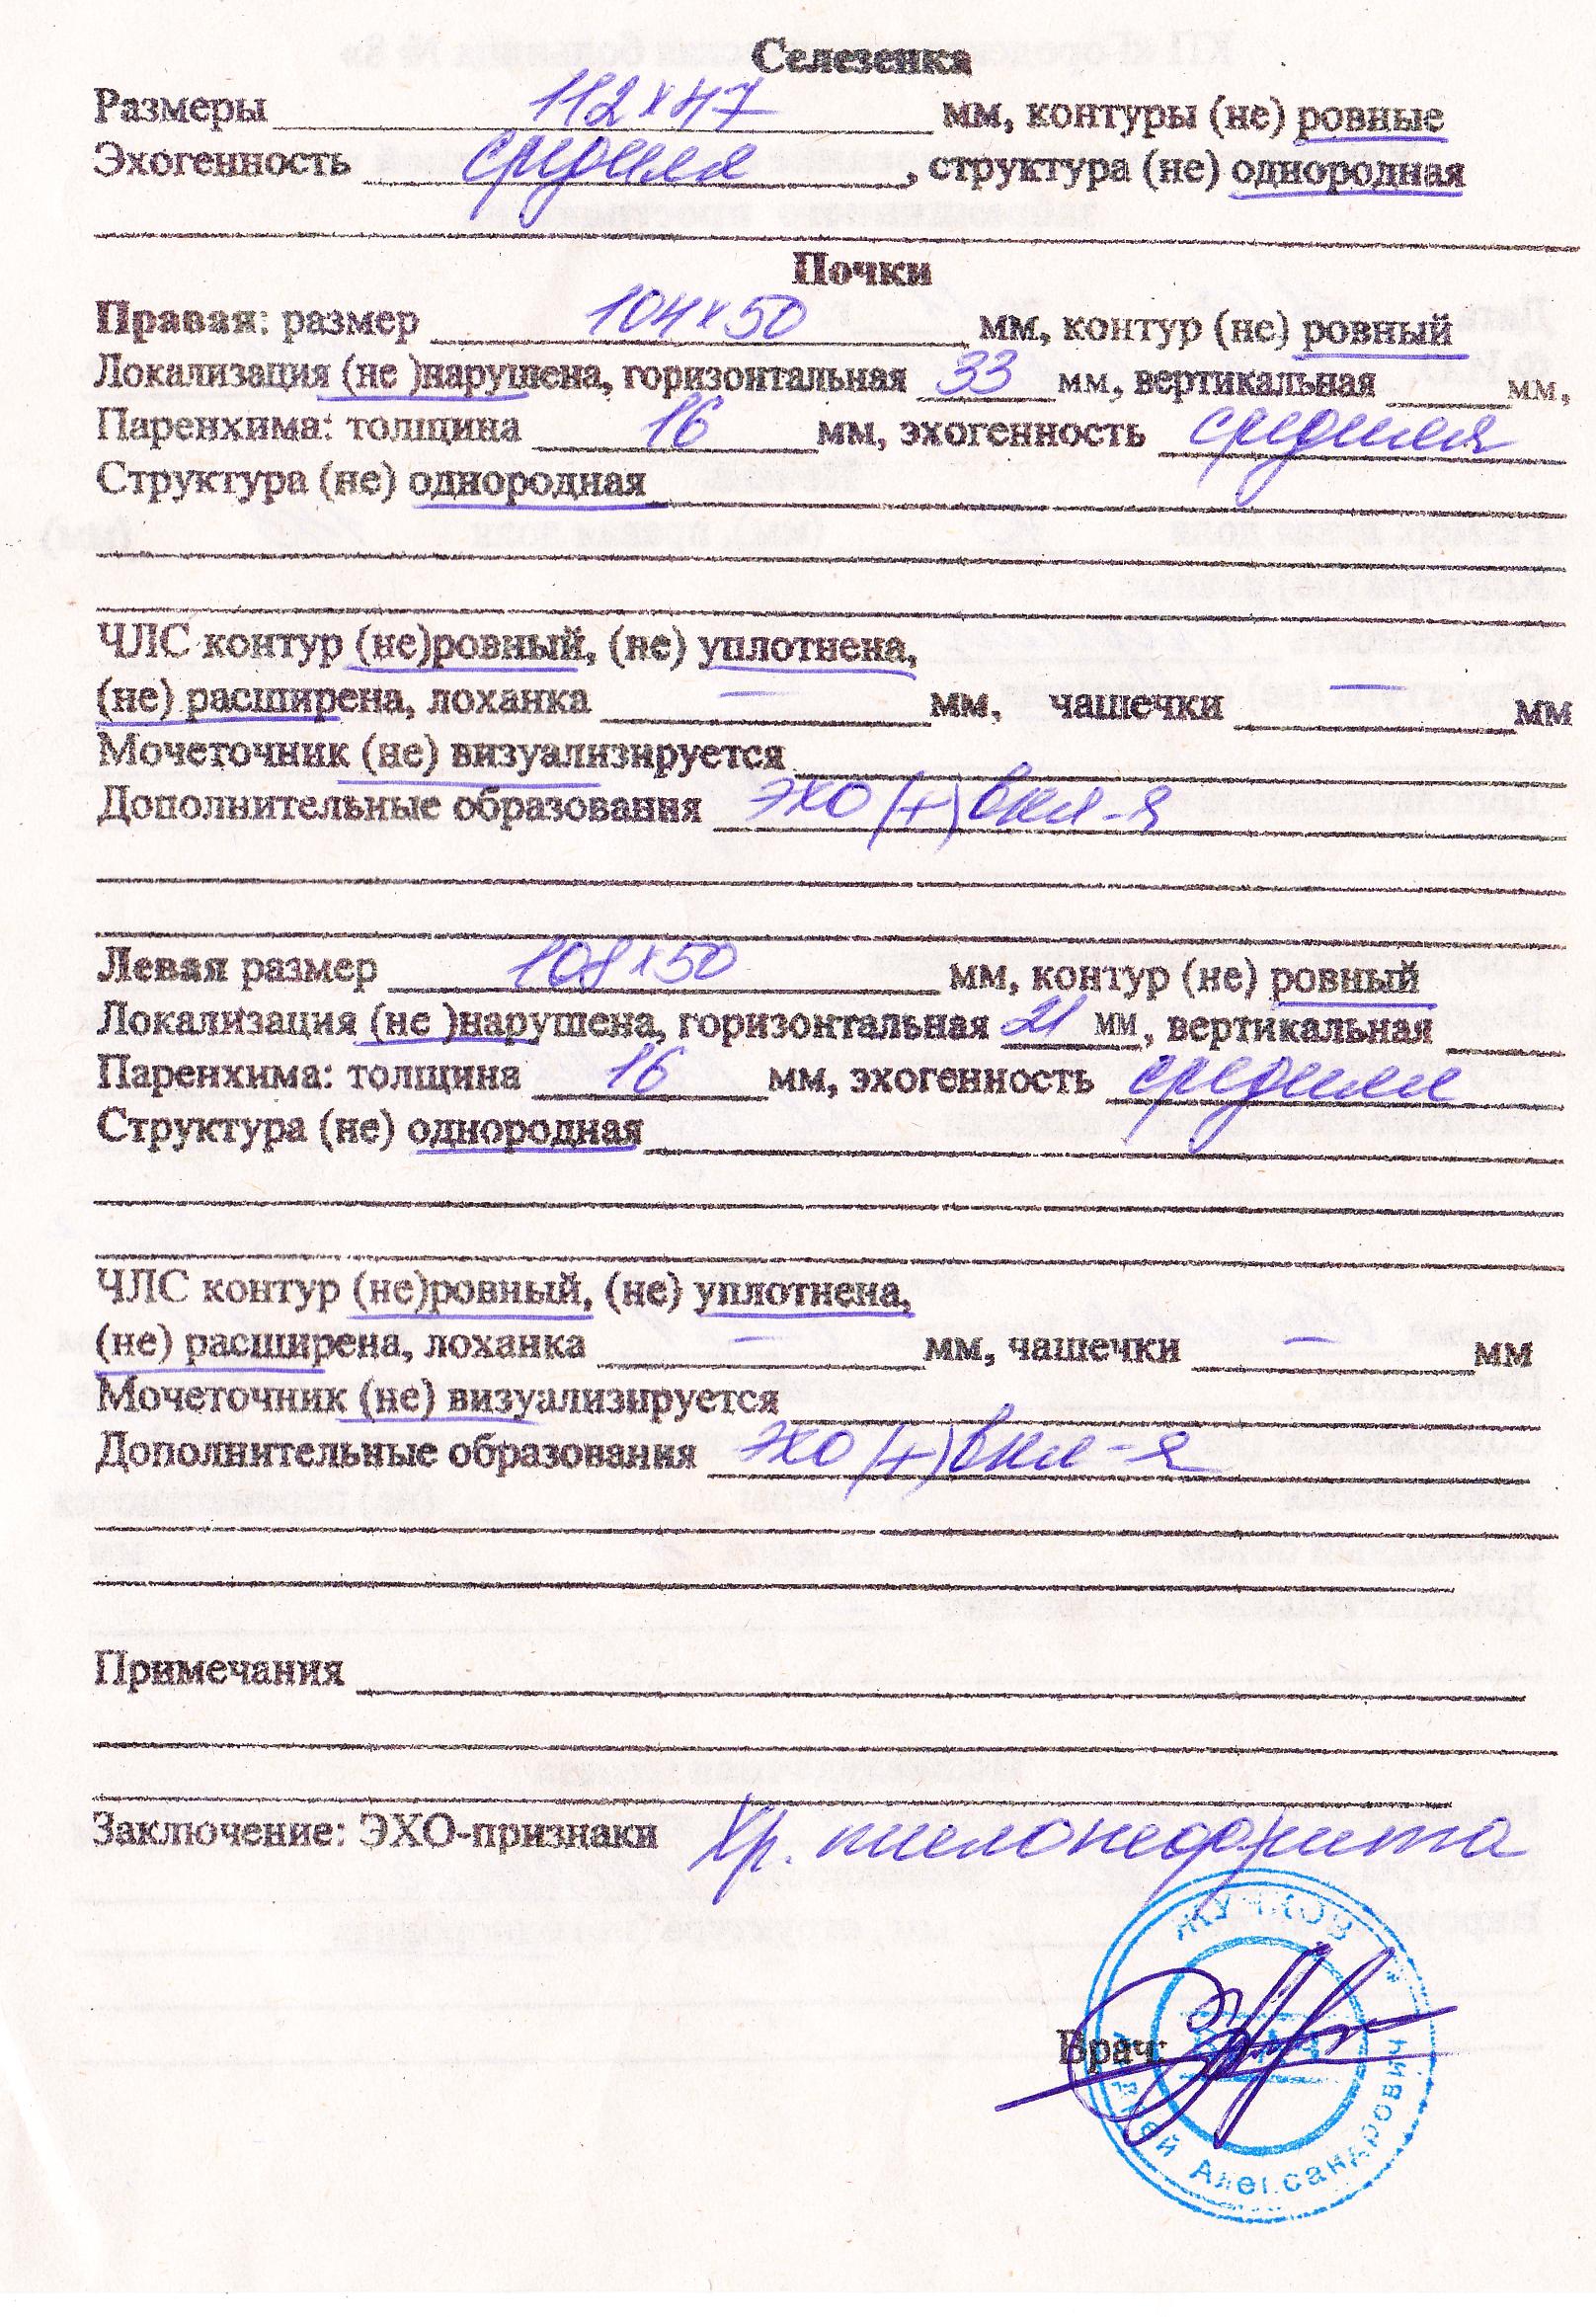 Селезенка
Размеры 112х47 мм, контуры (не) ровные
Эхогенность средняя, структура (не) однородная
Почки
Правая: размер 104х50 мм, контур (не) ровный
Локализация (не )нарушена, горизонтальная 33 мм, вертикальная мм,
Паренхима: толщина 16 мм, эхогенность средняя
Структура (не) однородная
ЧЛС контур (не)ровный, (не) уплотнена,
(не) расширена, лоханка — мм, чашечки — мм
Мочеточник (не) визуализируется
Дополнительные образования эхо (+) вкл-я
Левая размер 108х50 мм, контур (не) ровный
Локализация (не )нарушена, горизонтальная 21 мм, вертикальная
Паренхима: толщина 16 мм, эхогенность средняя
Структура (не) однородная
ЧЛС контур (не)ровный, (не) уплотнена,
(не) расширена, лоханка — мм, чашечки — мм
Мочеточник (не) визуализируется
Дополнительные образования эхо (+) вкл-я
Примечания
Заключение: ЭХО-признаки Хр. пиелонефрита
Врач:
ЖУЧКОВ
Александрович